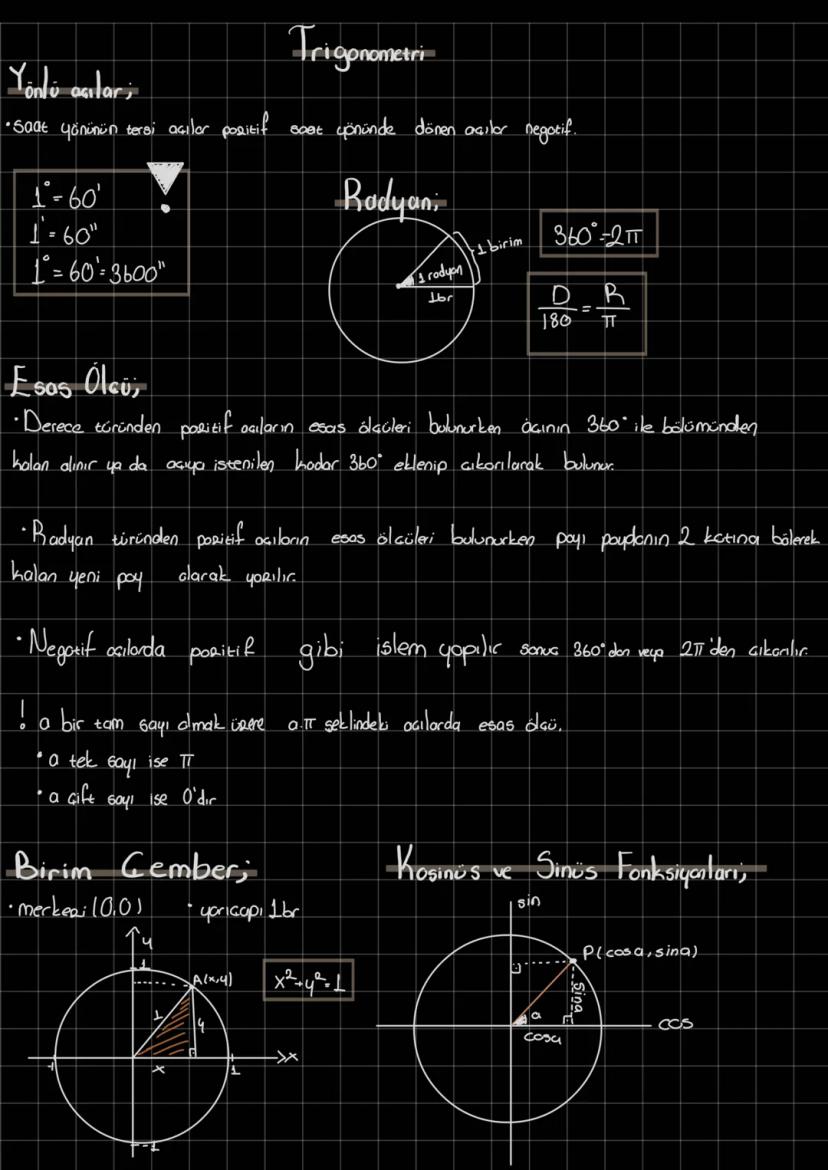 Trigonometri
Yönlü açılar;
•saat yönünün tersi açılar pozitif saat yönünde dönen açılar negatif.
1°=60'
1'=60"
1°=60'=3600"
Radyan;
1 birim
1 radyan
1br
360°=2π
D/180 = R/π
Esas Ölçü;
•Derece türünden pozitif açıların esas ölçüleri bulunurken açının 360° ile bölümünden
kalan alınır ya da açıya istenilen kadar 360° eklenip çıkarılarak bulunur.
•Radyan türünden pozitif açıların esas ölçüleri bulunurken payı paydanın 2 katına bölerek
kalan yeni pay olarak yazılır.
•Negatif açılarda pozitif gibi işlem yapılır sonuç 360°dan veya 2π'den çıkarılır.
! a bir tam sayı olmak üzere a.π şeklindeki açılarda esas ölçü,
•a tek sayı ise π
•a çift sayı ise 0'dır
Birim Çember;
•merkezi (0,0) •yarıçapı 1br
y
1
A(x,y)
1
y
x
-1
1
x
-1
x²+y²=1
Kosinüs ve Sinüs Fonksiyonları;
sin
P(cosa, sina)
sina
a
cosa
cos